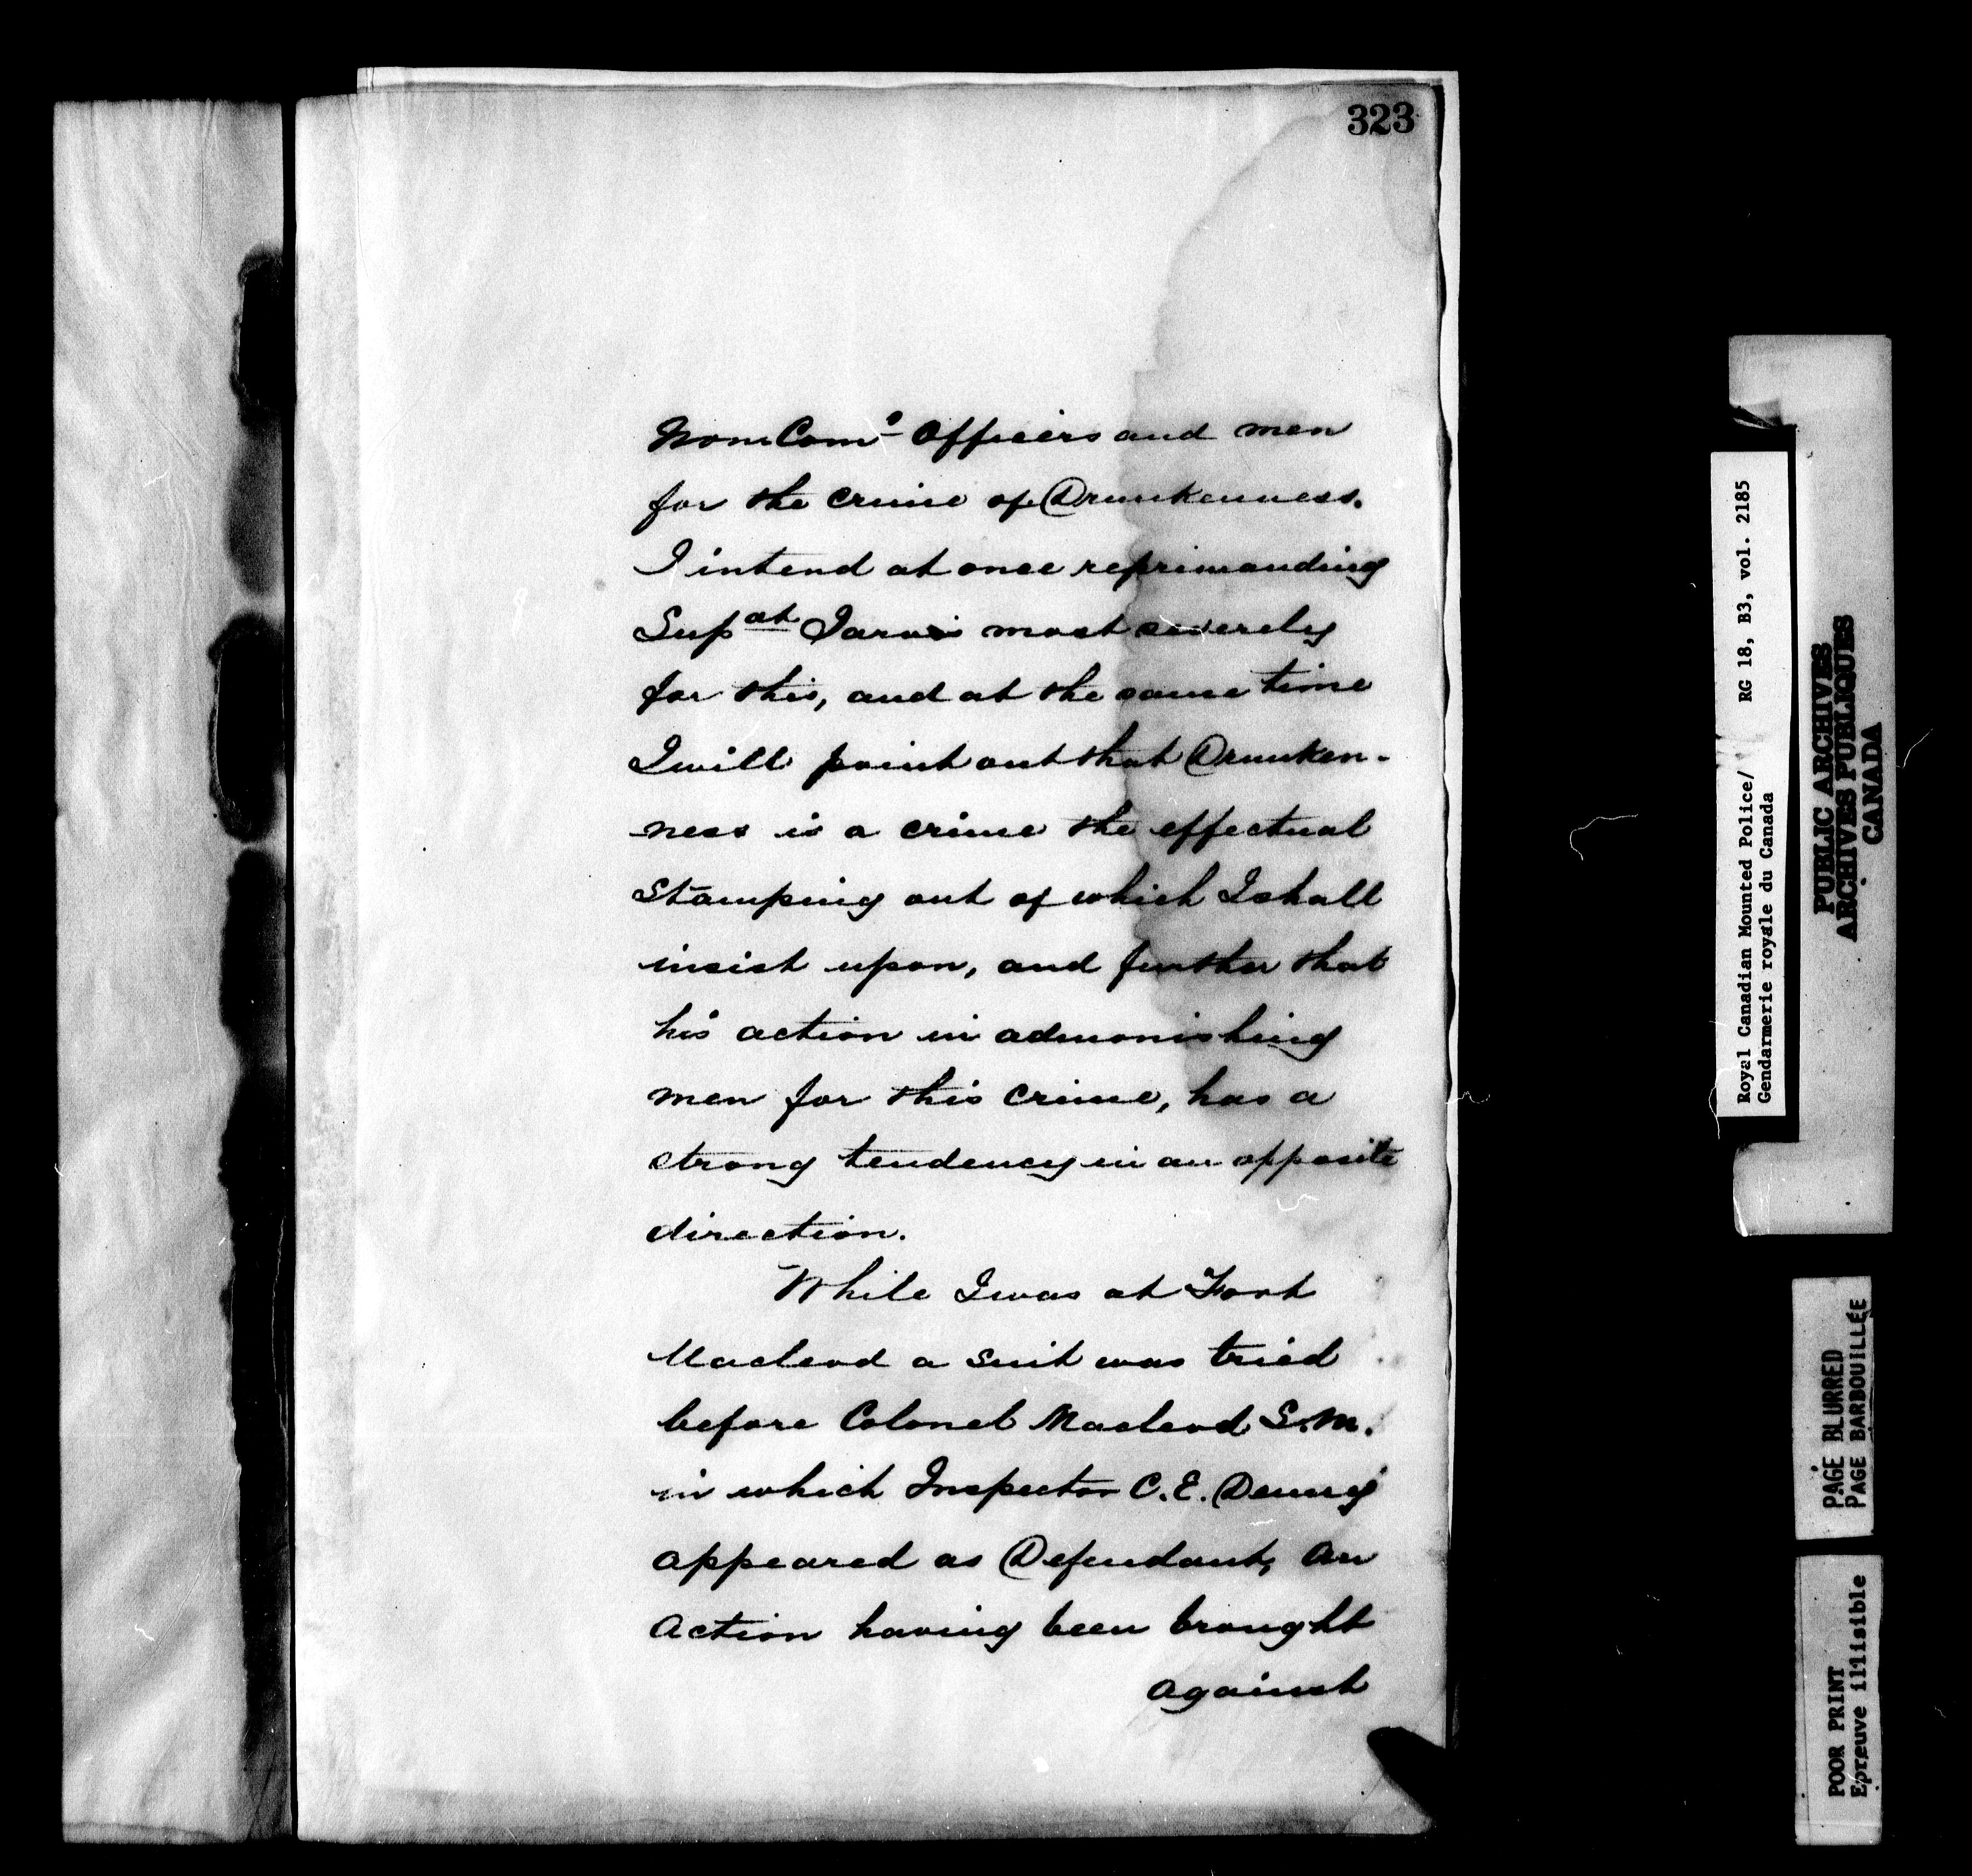 323
Non Com^d Officers and men
for the crime of Drunkenness.
I intend at once reprimanding
Sup^dt Jarvis most severely
for this, and at the same time
I will point out that Drunken-
ness is a crime the effectual
stamping out of which I shall
insist upon, and further that
his action in admonishing
men for this crime, has a
strong tendency in an opposite
direction.
While I was at Fort
Macleod a suit was tried
before Colonel Macleod S.M.
in which Inspector C.E. Denny
appeared as Defendant, an
Action having been brought
against
Royal Canadian Mounted Police/ RG 18, B3, vol. 2185
Gendarmerie royale du Canada
PUBLIC ARCHIVES
ARCHIVES PUBLIQUES
CANADA
PAGE BLURRED
PAGE BARBOUILLÉE
POOR PRINT
Epreuve illisible